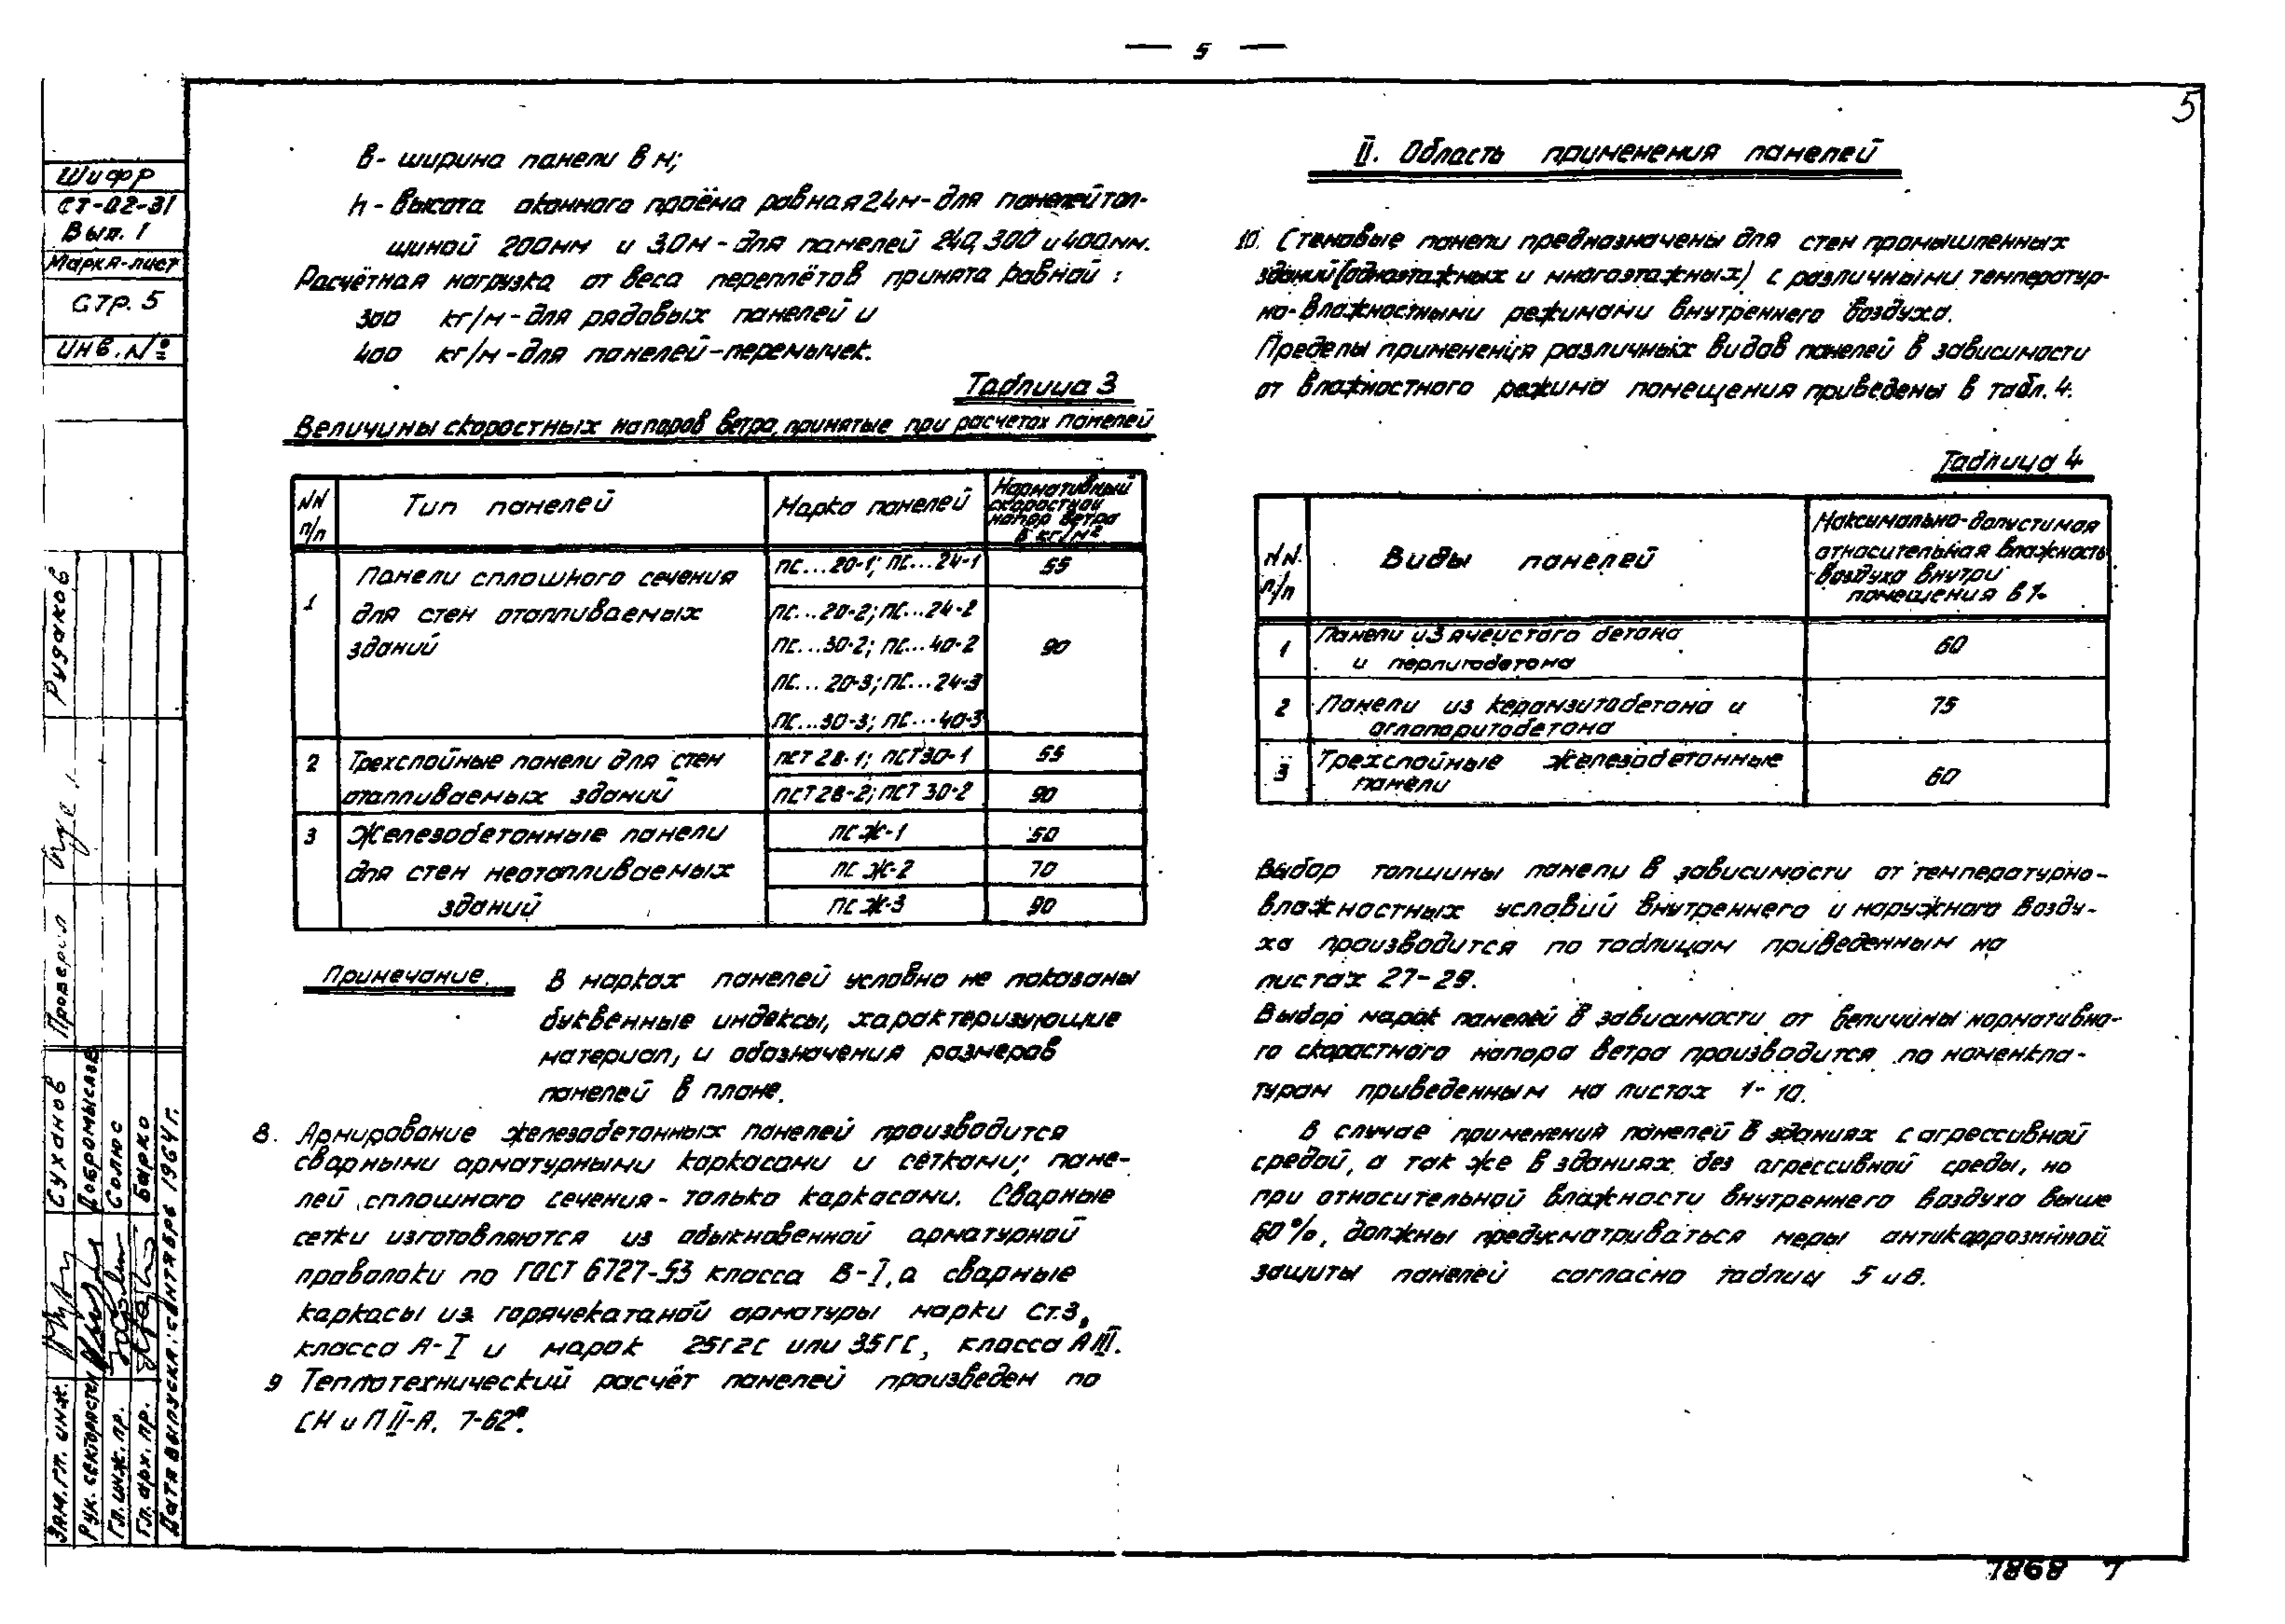 — 5 —
5
Шифр
СТ-02-31
Вып. 1
Марка-лист
Стр. 5
Инв. №
в - ширина панели в м;
h - высота оконного проёма равная 2,4м - для панелей тол-
щиной 200мм и 3,0м - для панелей 240, 300 и 400мм.
Расчётная нагрузка от веса переплётов принята равной:
300 кг/м - для рядовых панелей и
400 кг/м - для панелей-перемычек.
Таблица 3
Величины скоростных напоров ветра, принятые при расчетах панелей
NN п/п
Тип панелей
Марка панелей
Нормативный скоростной напор ветра в кг/м²
1
Панели сплошного сечения
для стен отапливаемых
зданий
ПС...20-1; ПС...24-1 55
ПС...20-2; ПС...24-2
ПС...30-2; ПС...40-2 90
ПС...20-3; ПС...24-3
ПС...30-3; ПС...40-3
2 Трехслойные панели для стен ПСТ 28-1; ПСТ 30-1 55
отапливаемых зданий ПСТ 28-2; ПСТ 30-2 90
3 Железобетонные панели ПСЖ-1 50
для стен неотапливаемых ПСЖ-2 70
зданий ПСЖ-3 90
Примечание. В марках панелей условно не показаны
буквенные индексы, характеризующие
материал, и обозначения размеров
панелей в плане.
8. Армирование железобетонных панелей производится
сварными арматурными каркасами и сетками; пане-
лей сплошного сечения - только каркасами. Сварные
сетки изготовляются из обыкновенной арматурной
проволоки по ГОСТ 6727-53 класса В-I, а сварные
каркасы из горячекатаной арматуры марки Ст.3,
класса А-I и марок 25Г2С или 35ГС, класса АIII.
9 Теплотехнический расчёт панелей произведен по
СНиП II-А. 7-62*.
II. Область применения панелей
10. Стеновые панели предназначены для стен промышленных
зданий (одноэтажных и многоэтажных) с различными температур-
но-влажностными режимами внутреннего воздуха.
Пределы применения различных видов панелей в зависимости
от влажностного режима помещения приведены в табл. 4.
Таблица 4
NN. п/п
Виды панелей
Максимально-допустимая
относительная влажность
воздуха внутри
помещения в %
1 Панели из ячеистого бетона
и перлитобетона 60
2 Панели из керамзитобетона и
аглопоритобетона 75
3 Трехслойные железобетонные
панели 60
Выбор толщины панели в зависимости от температурно-
влажностных условий внутреннего и наружного возду-
ха производится по таблицам приведенным на
листах 27-29.
Выбор марок панелей в зависимости от величины нормативно-
го скоростного напора ветра производится по номенкла-
турам приведенным на листах 1-10.
В случае применения панелей в зданиях с агрессивной
средой, а так же в зданиях без агрессивной среды, но
при относительной влажности внутреннего воздуха выше
60%, должны предусматриваться меры антикоррозийной
защиты панелей согласно таблиц 5 и 6.
Рудаков
Проверил
Зам. гл. инж. Суханов
Рук. сектора Добромыслов
Гл. инж. пр. Солюс
Гл. арх. пр. Барко
Дата выпуска: сентябрь 1964 г.
7868 7